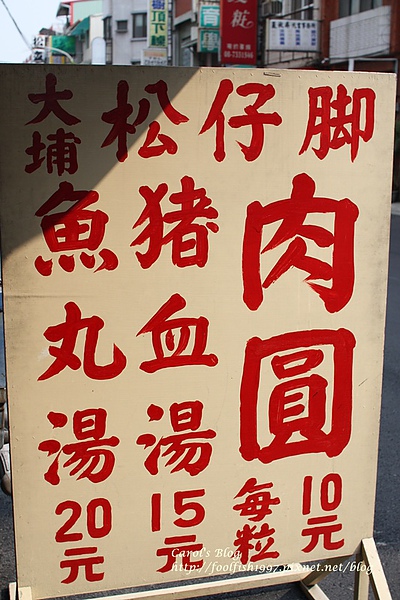 大埔松仔脚
肉圓
每粒10元
猪血湯
15元
魚丸湯
20元
Carol's Blog
http://foolfish1997.pixnet.net/blog